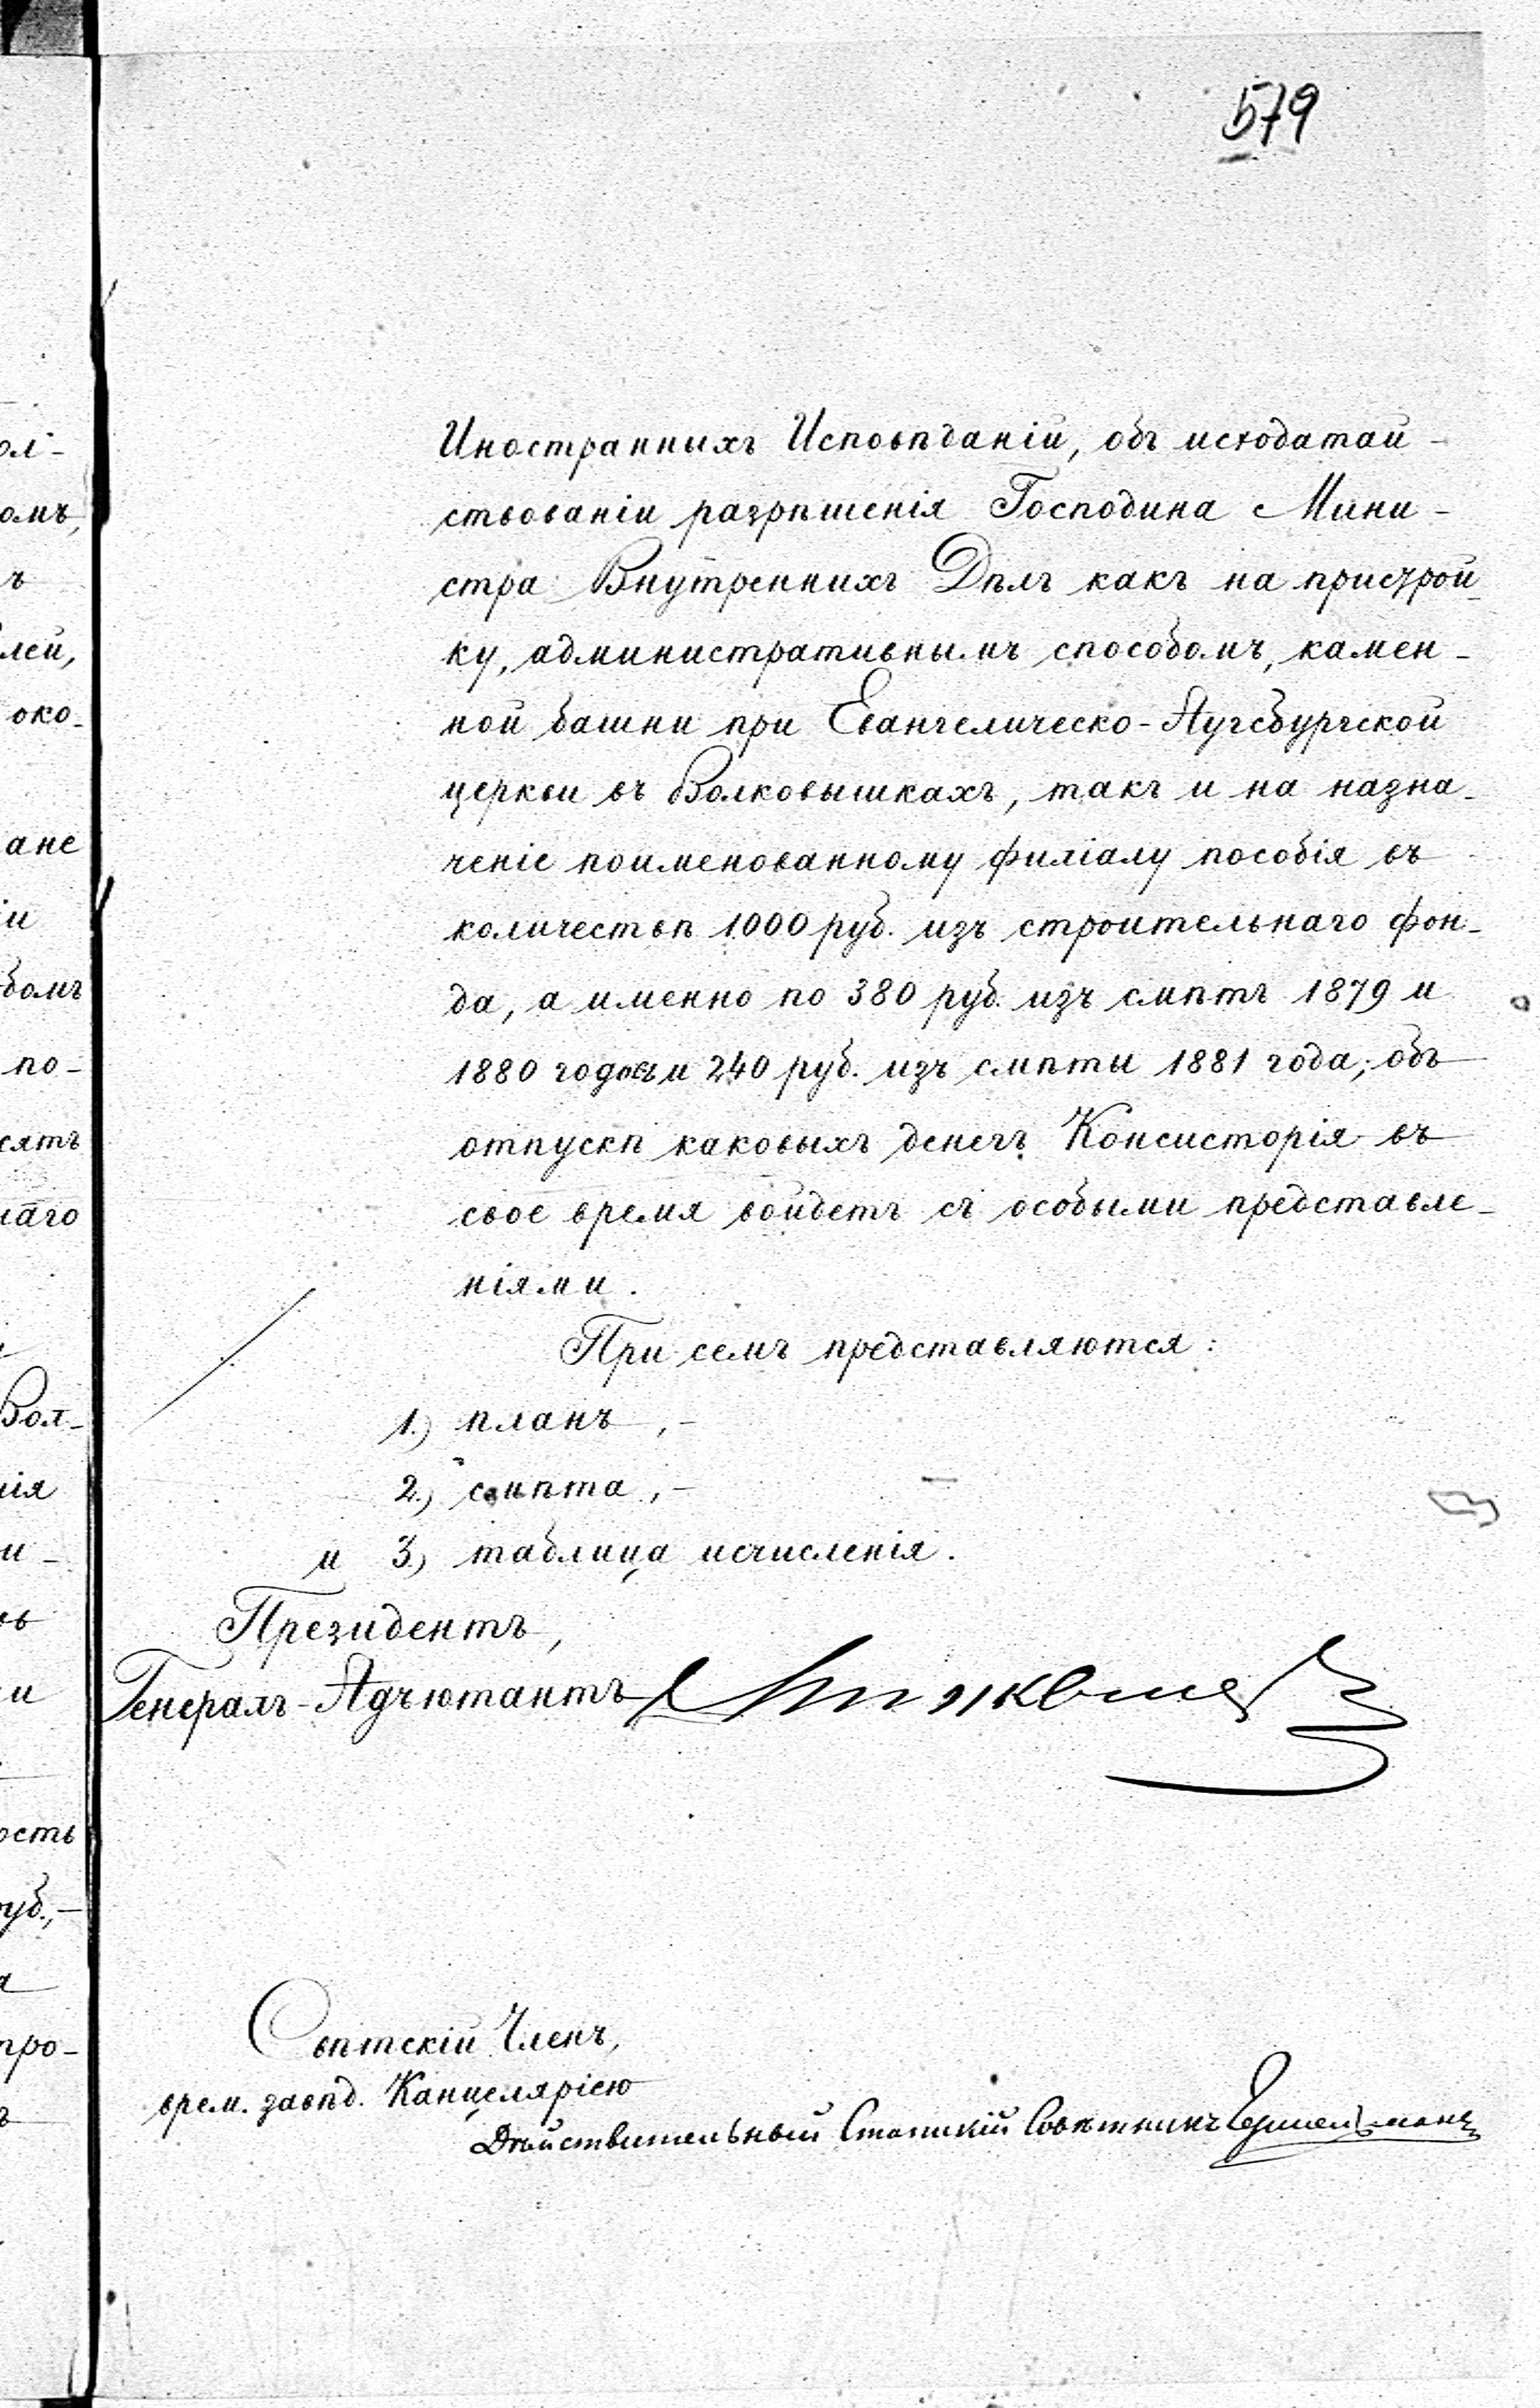 579
Иностранныхъ Исповѣданій, объ исходатай-
ствованіи разрѣшенія Господина Мини-
стра Внутреннихъ Дѣлъ какъ на пристрой-
ку, административнымъ способомъ, камен-
ной башни при Евангелическо-Аугсбургской
церкви въ Волковышкахъ, такъ и на назна-
ченіе поименованному филіалу пособія въ
количествѣ 1000 руб. изъ строительнаго фон-
да, а именно по 380 руб. изъ смѣтъ 1879 и
1880 годовъ и 240 руб. изъ смѣты 1881 года; объ
отпускѣ каковыхъ денегъ Консисторія въ
свое время войдетъ съ особыми представле-
ніями.
При семъ представляются:
1.) планъ,-
2.) смѣта,-
и 3.) таблица исчисленія.
Президентъ,
Генералъ-Адъютантъ
Свѣтскій Членъ,
врем. завѣд. Канцеляріею
Дѣйствительный Статскій Совѣтникъ
олі-
омъ,
ъ
лей,
око-
ане
іи
бомъ
по-
сятъ
наго
Вол-
нія
и-
ъ
и
ость
руб.,-
а
про-